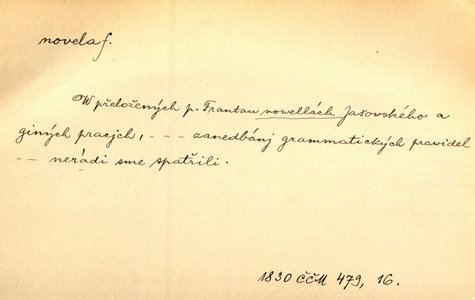 novela f.
W přeložených p. Frantau nowellách Jašowského a
giných pracjch, - - - zanedbánj grammatických prawidel
- - nerádi sme spatřili.
1830 ČČM 479, 16.